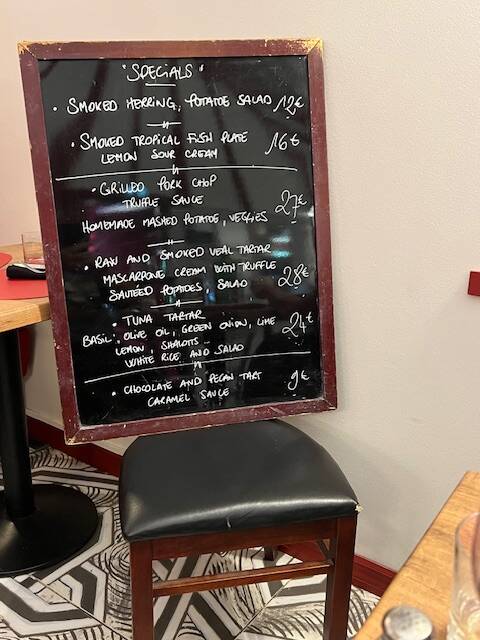 "SPECIALS"
• SMOKED HERRING, POTATOE SALAD 12€
• SMOKED TROPICAL FISH PLATE 16€
LEMON SOUR CREAM
• GRILLED PORK CHOP
TRUFFLE SAUCE 27€
HOMEMADE MASHED POTATOE, VEGGIES
• RAW AND SMOKED VEAL TARTAR
MASCARPONE CREAM WITH TRUFFLE 28€
SAUTÉED POTATOES, SALAD
• TUNA TARTAR
BASIL, OLIVE OIL, GREEN ONION, LIME 24€
LEMON, SHALOTTS
WHITE RICE AND SALAD
• CHOCOLATE AND PECAN TART 9€
CARAMEL SAUCE